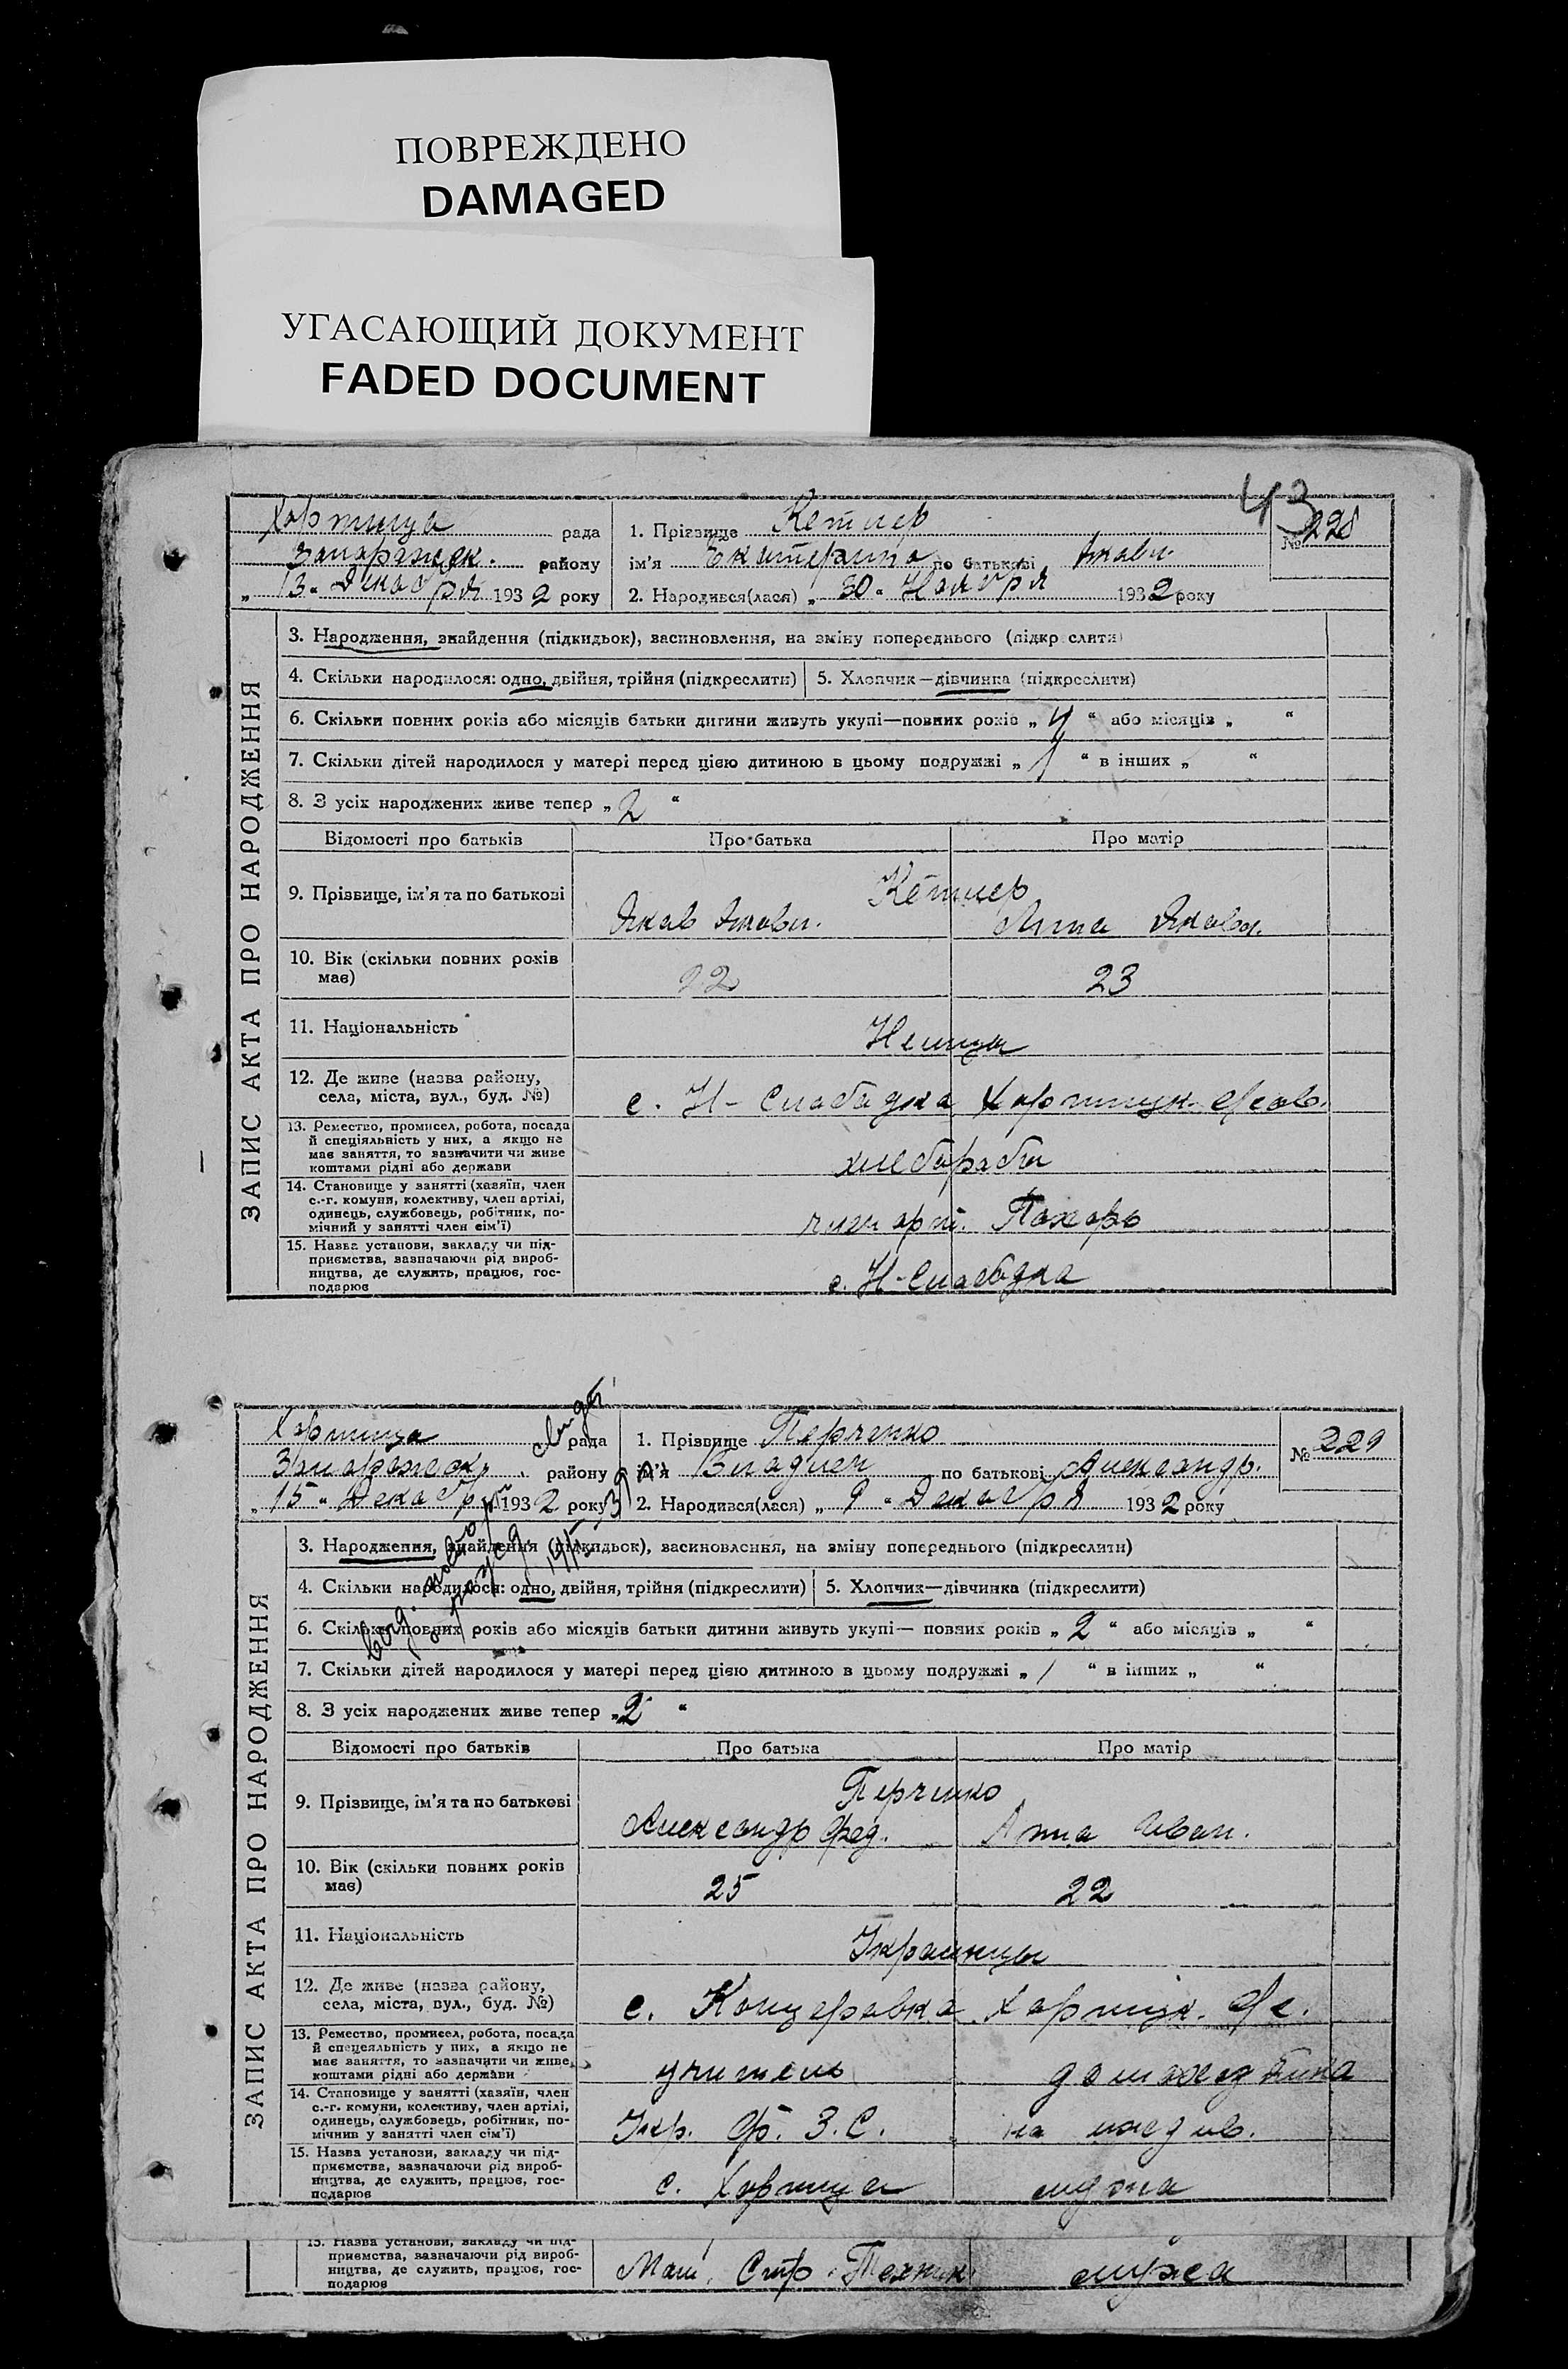 ПОВРЕЖДЕНО
DAMAGED
УГАСАЮЩИЙ ДОКУМЕНТ
FADED DOCUMENT
43
ЗАПИС АКТА ПРО НАРОДЖЕННЯ
Хортица рада 1. Прізвище Кетлер № 228
Запорожск. району ім'я Екатерина по батькові Яковл.
„ 13 " Декабря 1932 року 2. Народився(лася) „ 30 " Ноября 1932 року
3. Народження, знайдення (підкидьок), васиновлення, на зміну попереднього (підкреслити)
4. Скільки народилося: одно, двійня, трійня (підкреслити) 5. Хлопчик—дівчинка (підкреслити)
6. Скільки повних років або місяців батьки дитини живуть укупі—повних років „ 4 " або місяців „ "
7. Скільки дітей народилося у матері перед цією дитиною в цьому подружжі „ 1 " в інших „ "
8. З усіх народжених живе тепер „ 2 "
Відомості про батьків Про батька Про матір
9. Прізвище, ім'я та по батькові Кетлер
Яков Яковл. Анна Яковл.
10. Вік (скільки повних років має) 22 23
11. Національність Немцы
12. Де живе (назва району, села, міста, вул., буд. №) с. Н-Слободка Хортицк.
13. Ремество, промисел, робота, посада й спеціяльність у них, а якщо не має заняття, то зазначити чи живе коштами рідні або держави хлеборобы
14. Становище у занятті (хазяїн, член с.-г. комуни, колективу, член артілі, одинець, службовець, робітник, помічний у занятті член сім'ї) члены арт. Пахарь
15. Назва установи, закладу чи підприємства, зазначаючи рід виробництва, де служить, працює, господарює с. Н-Слободка
ЗАПИС АКТА ПРО НАРОДЖЕННЯ
Хортица рада 1. Прізвище Перченко № 229
Запорожск. району ім'я Владлен по батькові Александр.
„ 15 " Декабря 1932 року 2. Народився(лася) „ 9 " Декабря 1932 року
3. Народження, знайдення (підкидьок), васиновлення, на зміну попереднього (підкреслити)
4. Скільки народилося: одно, двійня, трійня (підкреслити) 5. Хлопчик—дівчинка (підкреслити)
6. Скільки повних років або місяців батьки дитини живуть укупі— повних років „ 2 " або місяців „ "
7. Скільки дітей народилося у матері перед цією дитиною в цьому подружжі „ 1 " в інших „ "
8. З усіх народжених живе тепер „ 2 "
Відомості про батьків Про батька Про матір
9. Прізвище, ім'я та по батькові Перченко
Александр Фед. Анна Иван.
10. Вік (скільки повних років має) 25 22
11. Національність Украинцы
12. Де живе (назва району, села, міста, вул., буд. №) с. Канцеровка Хортицк.
13. Ремество, промисел, робота, посада й спеціяльність у них, а якщо не має заняття, то зазначити чи живе коштами рідні або держави учитель домохозяйка
14. Становище у занятті (хазяїн, член с.-г. комуни, колективу, член артілі, одинець, службовець, робітник, помічний у занятті член сім'ї) Укр. Ф. З. С. на иждив.
15. Назва установи, закладу чи підприємства, зазначаючи рід виробництва, де служить, працює, господарює с. Хортица мужа
15. Назва установи, закладу чи підприємства, зазначаючи рід виробництва, де служить, працює, господарює Маш. Стр. Техник. мужа